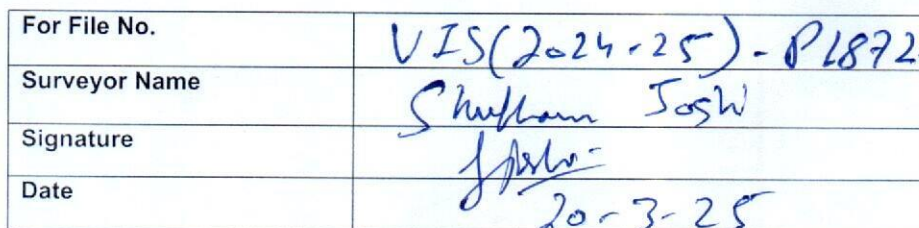 For File No. VIS(2024-25)-PL872
Surveyor Name Shubham Joshi
Signature
Date 20-3-25